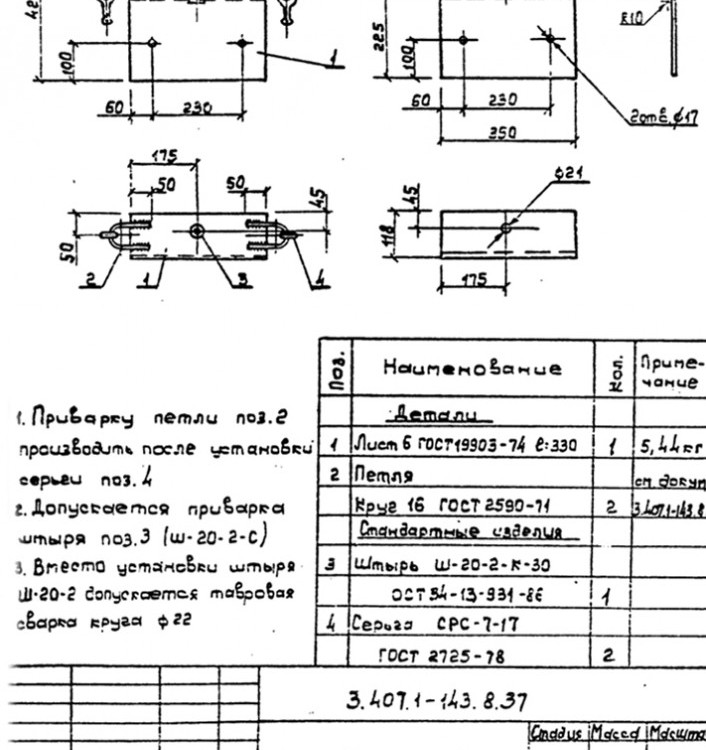 100
60
230
1
225
100
60
230
350
2отв.ф17
R10
175
50
50
45
50
2
1
3
4
ф21
45
118
175
Поз.
Наименование
Кол.
Приме-
чание
Детали
1 Лист 6 ГОСТ19903-74 ℓ=330 1 5,44кг
2 Петля см. докум
Круг 16 ГОСТ 2590-71 2 3.407.1-143.8
Стандартные изделия
3 Штырь Ш-20-2-К-30
ОСТ 34-13-931-86 1
4 Серьга СРС-7-17
ГОСТ 2725-78 2
1. Приварку петли поз.2
производить после установки
серьги поз.4
2. Допускается приварка
штыря поз.3 (Ш-20-2-С)
3. Вместо установки штыря
Ш-20-2 допускается тавровая
сварка круга ф22
3.407.1-143.8.37
Стадия Масса Масшта